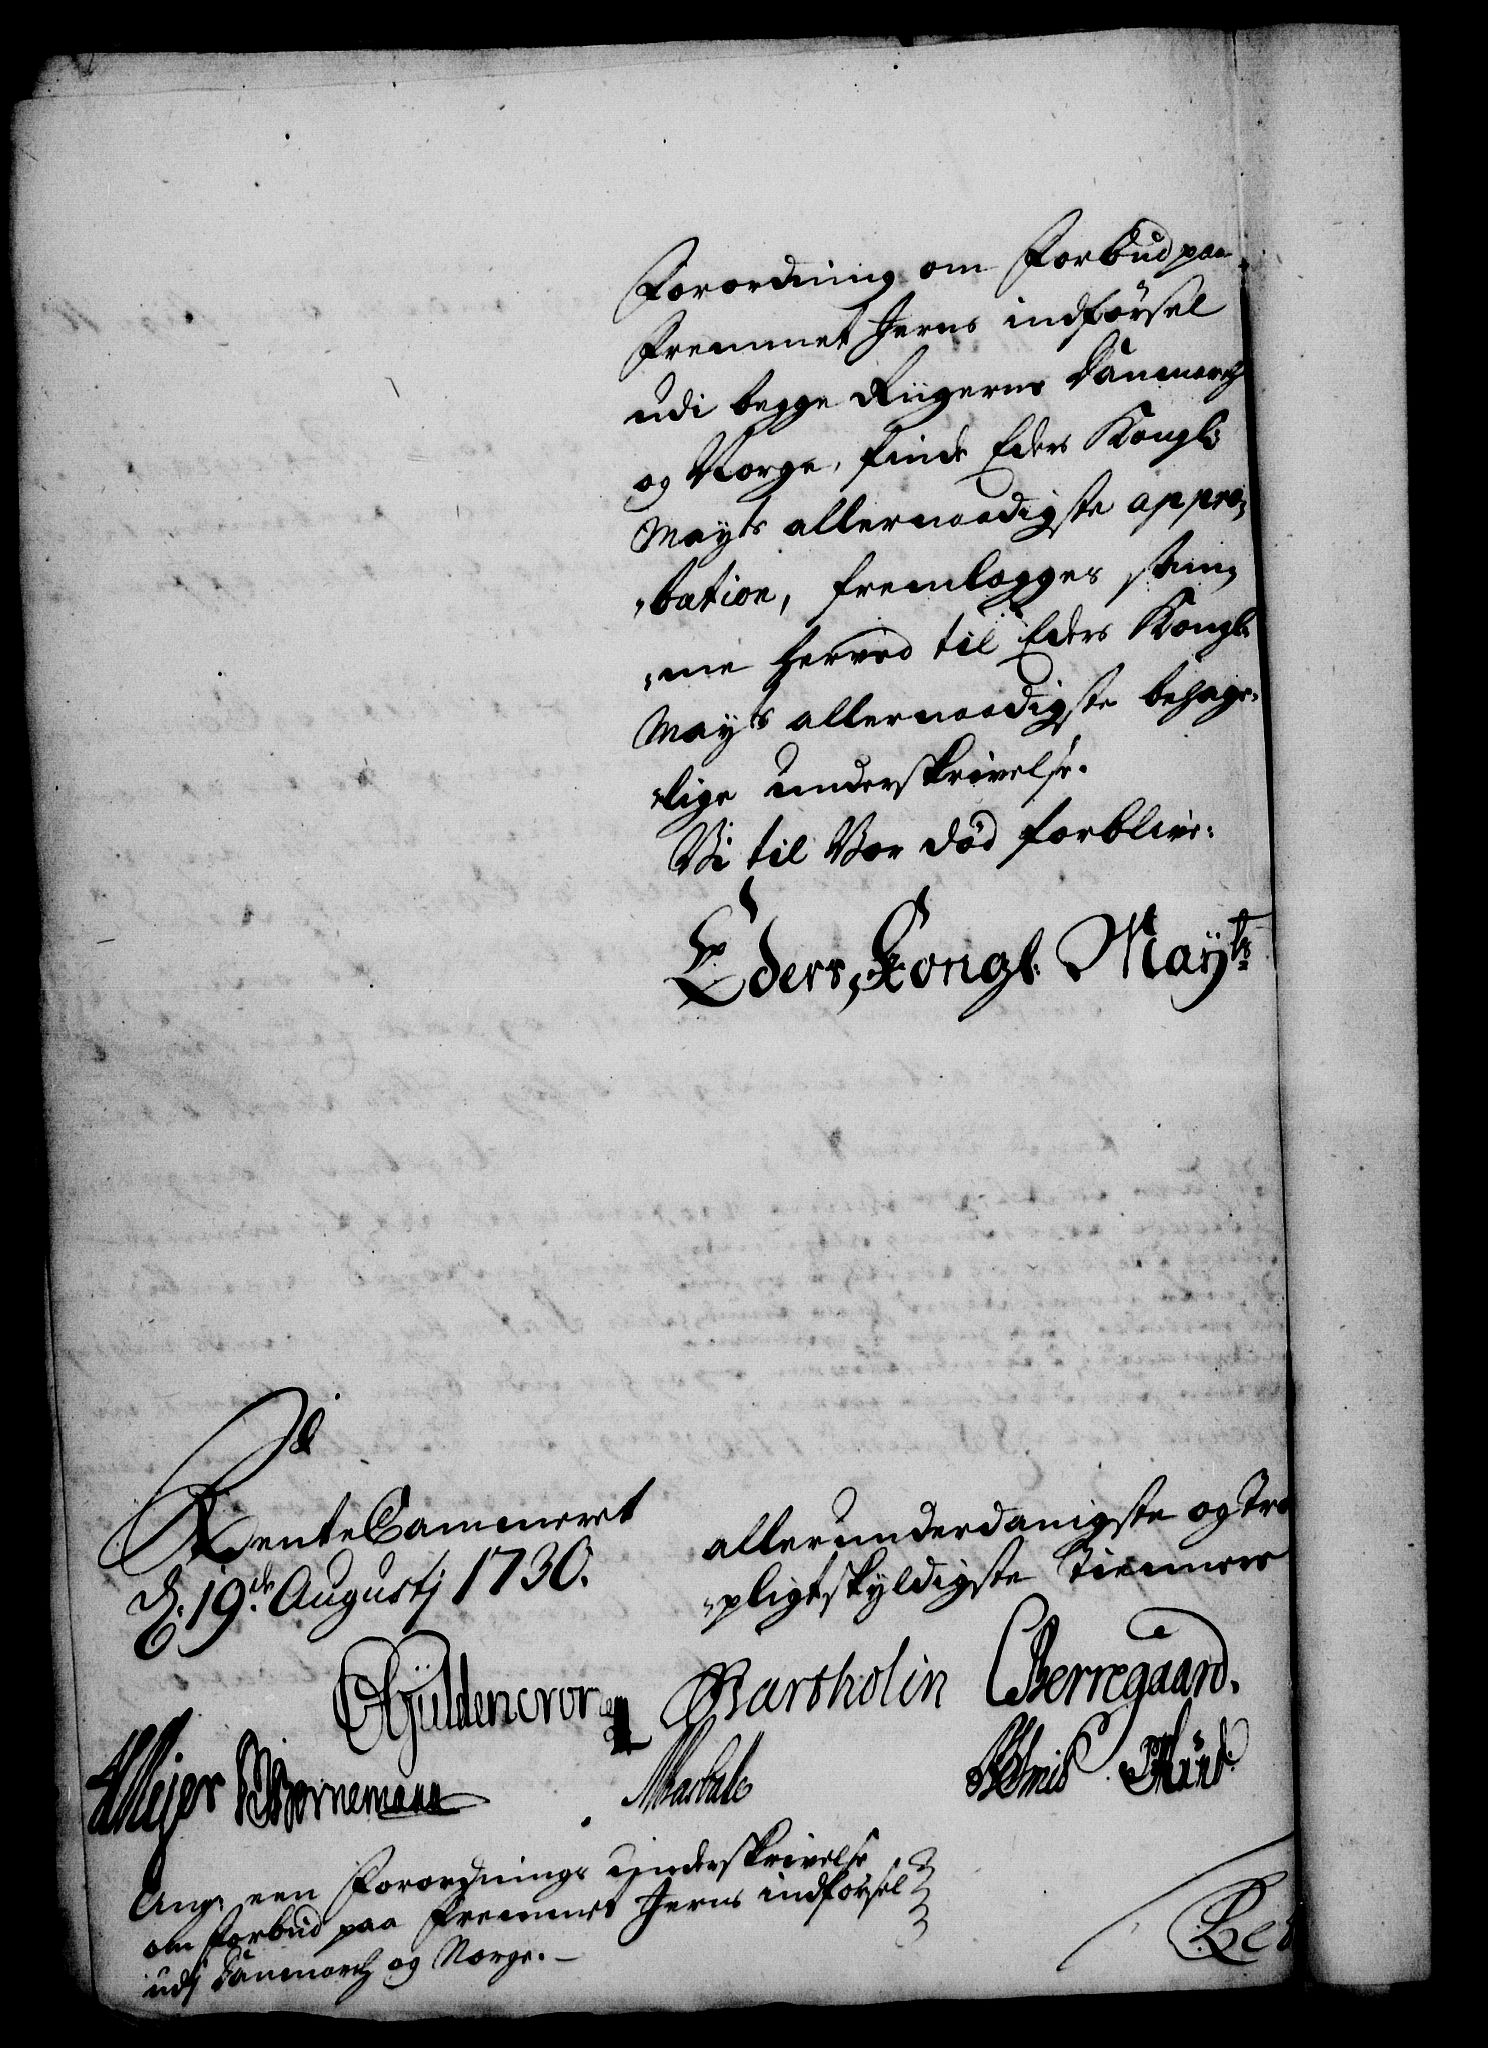 Forordning om Forbud paa
Fremmet Jerns indførsel
udi begge Riigerne Danmarch
og Norge, finde Eders Kongl:
Mayts allernaadigste appro,
,bation, fremlægges sam,
,me herved til Eders Kongl:
Mayts allernaadigste behage,
,lige underskrivelse.
Vi til Vor død forblive:
Eders Kongl. Mayts
RenteCammeret
d. 19de Augustj 1730.
allerunderdanigste og tro
,pligtskyldigste Tienere
Güldencrone Bartholin CBerregaard.
Meyer Bornemann
Ang: een Forordnings underskrivelse
om forbud paa fremmet Jerns indførsel
udj Danmarch og Norge. –